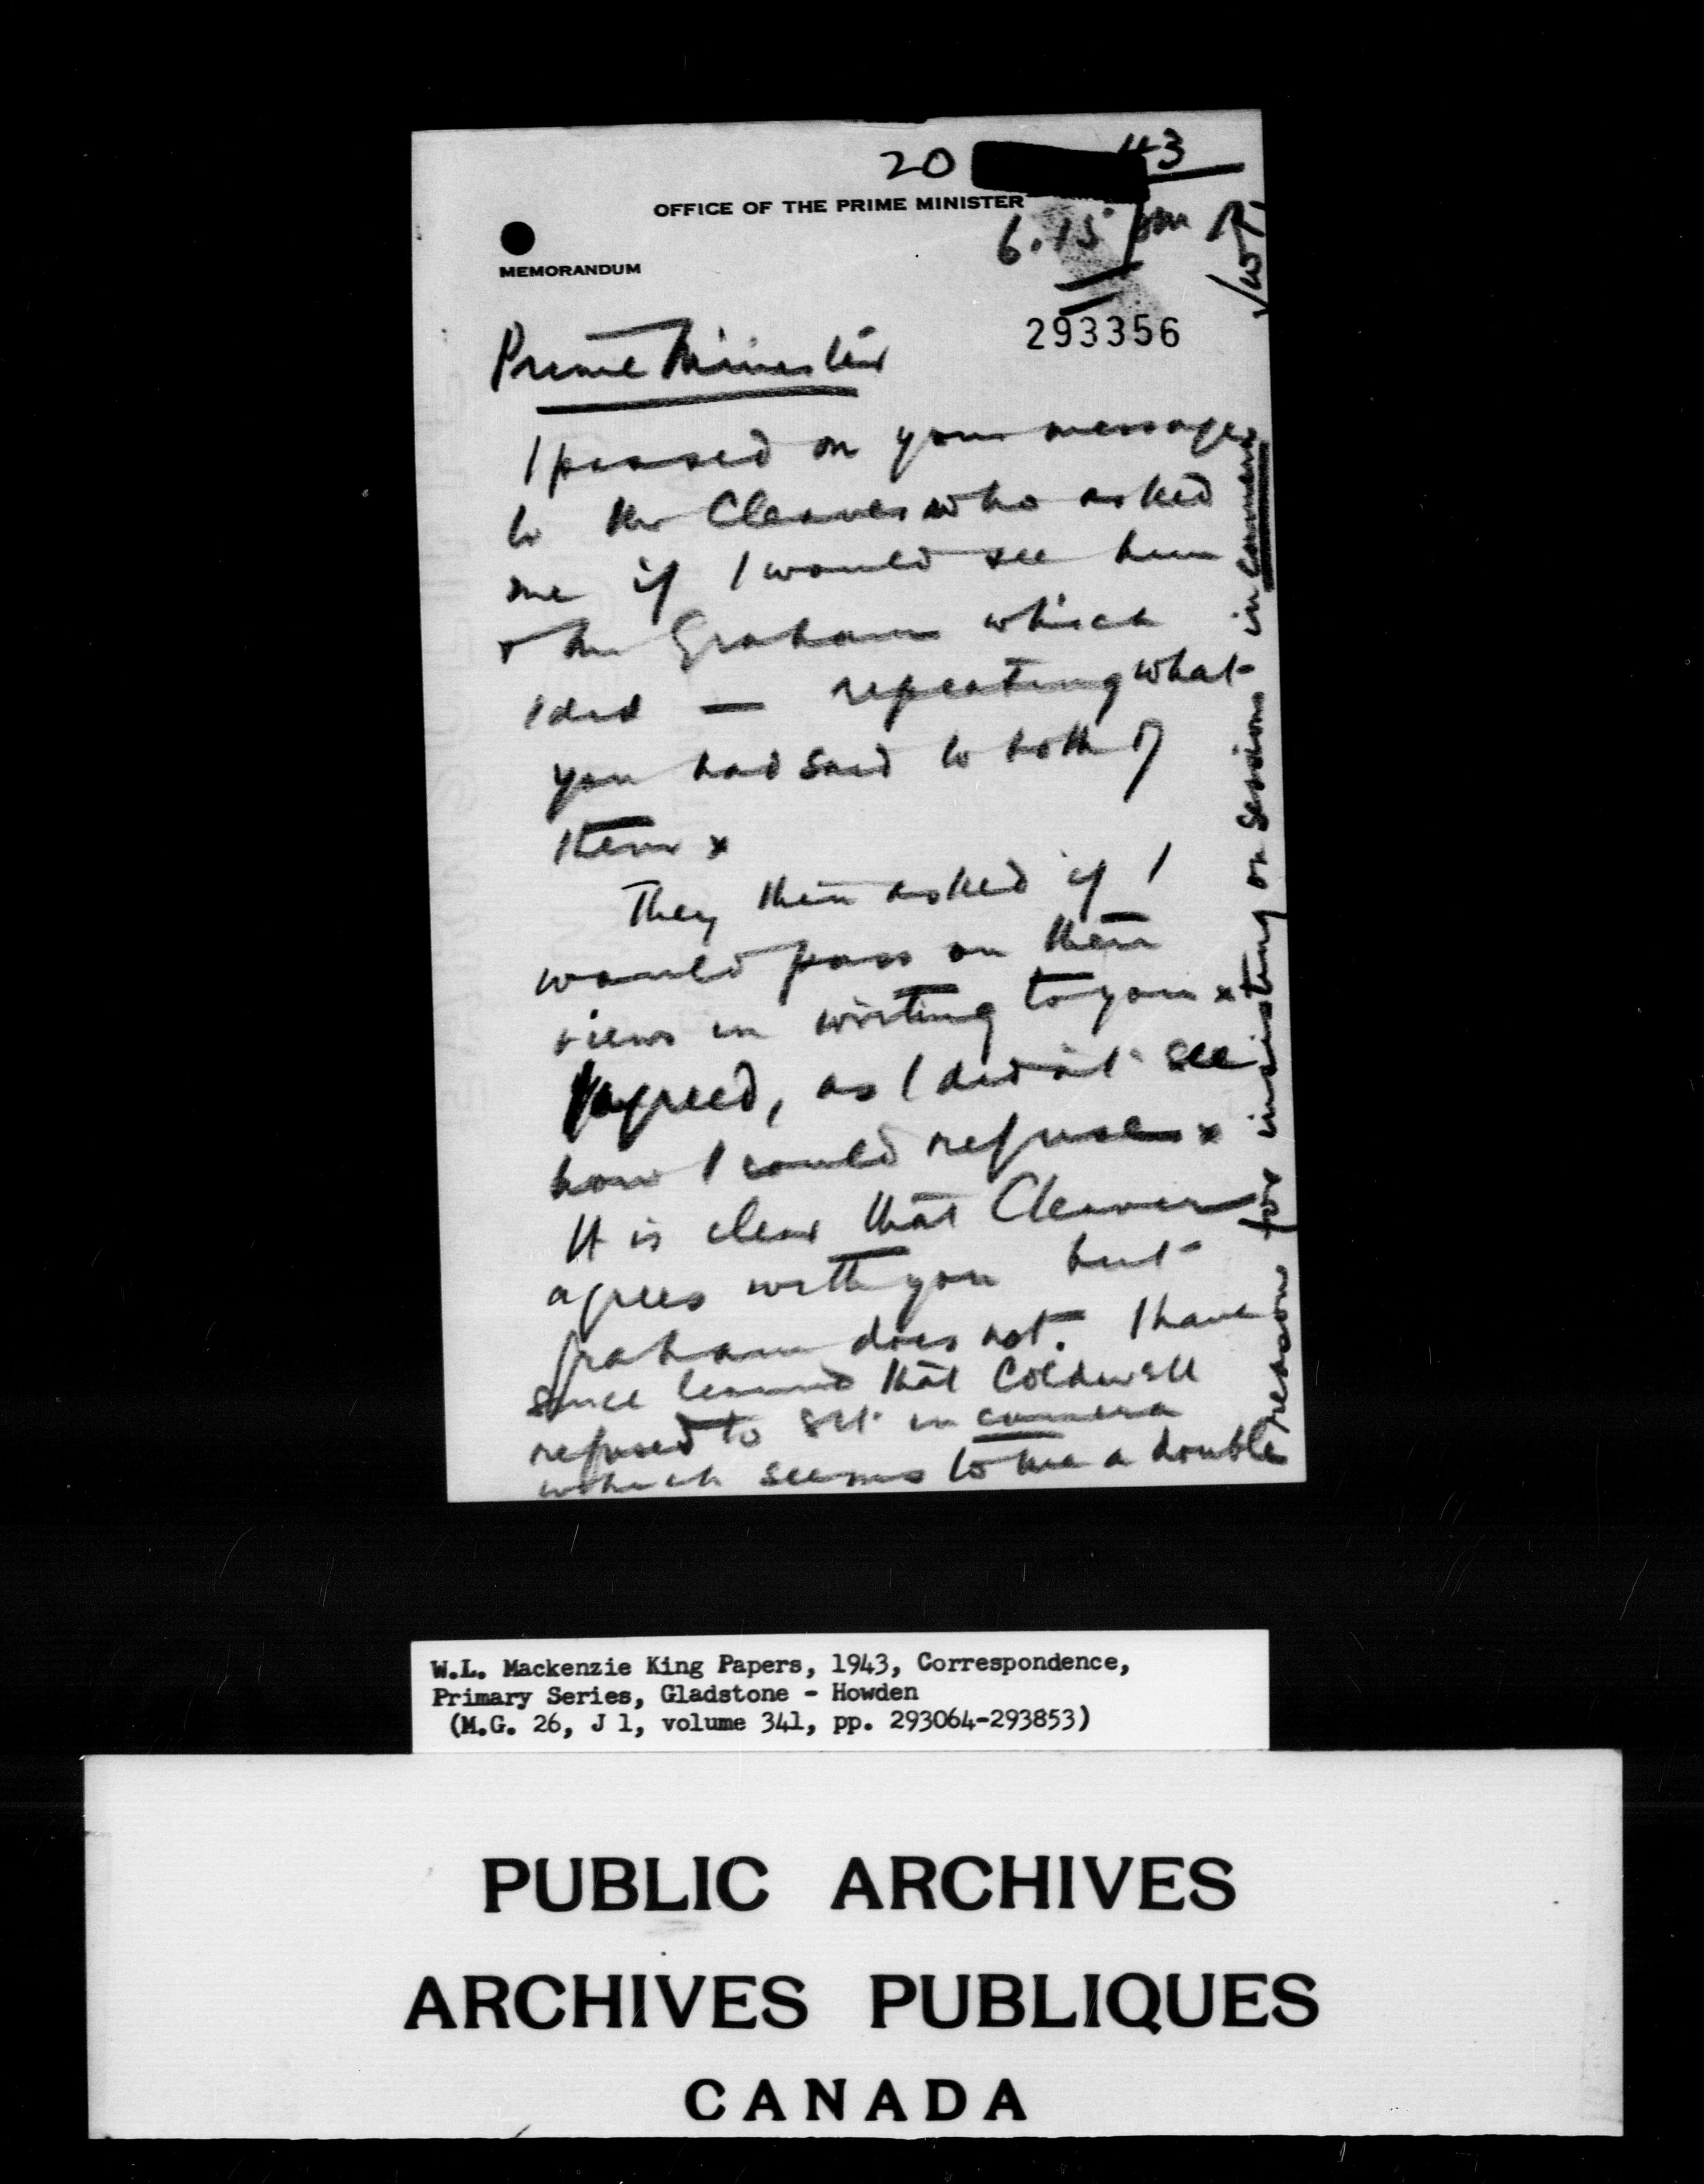 20 43
OFFICE OF THE PRIME MINISTER
6.15 pm
MEMORANDUM
293356
Prime Minister
I passed on your message
to Mr Cleaver who asked
me if I would see him
& Mr Graham which
I did — repeating what
you had said to both of
them x
They then asked if I
would pass on their
views in writing to you x
I agreed, as I didn't see
how I could refuse x
It is clear that Cleaver
agrees with you but
Graham does not. I have
since learned that Coldwell
refused to sit in camera
which seems to me a double
reason for insisting on sessions in camera
W.L. Mackenzie King Papers, 1943, Correspondence,
Primary Series, Gladstone - Howden
(M.G. 26, J 1, volume 341, pp. 293064-293853)
PUBLIC ARCHIVES
ARCHIVES PUBLIQUES
CANADA